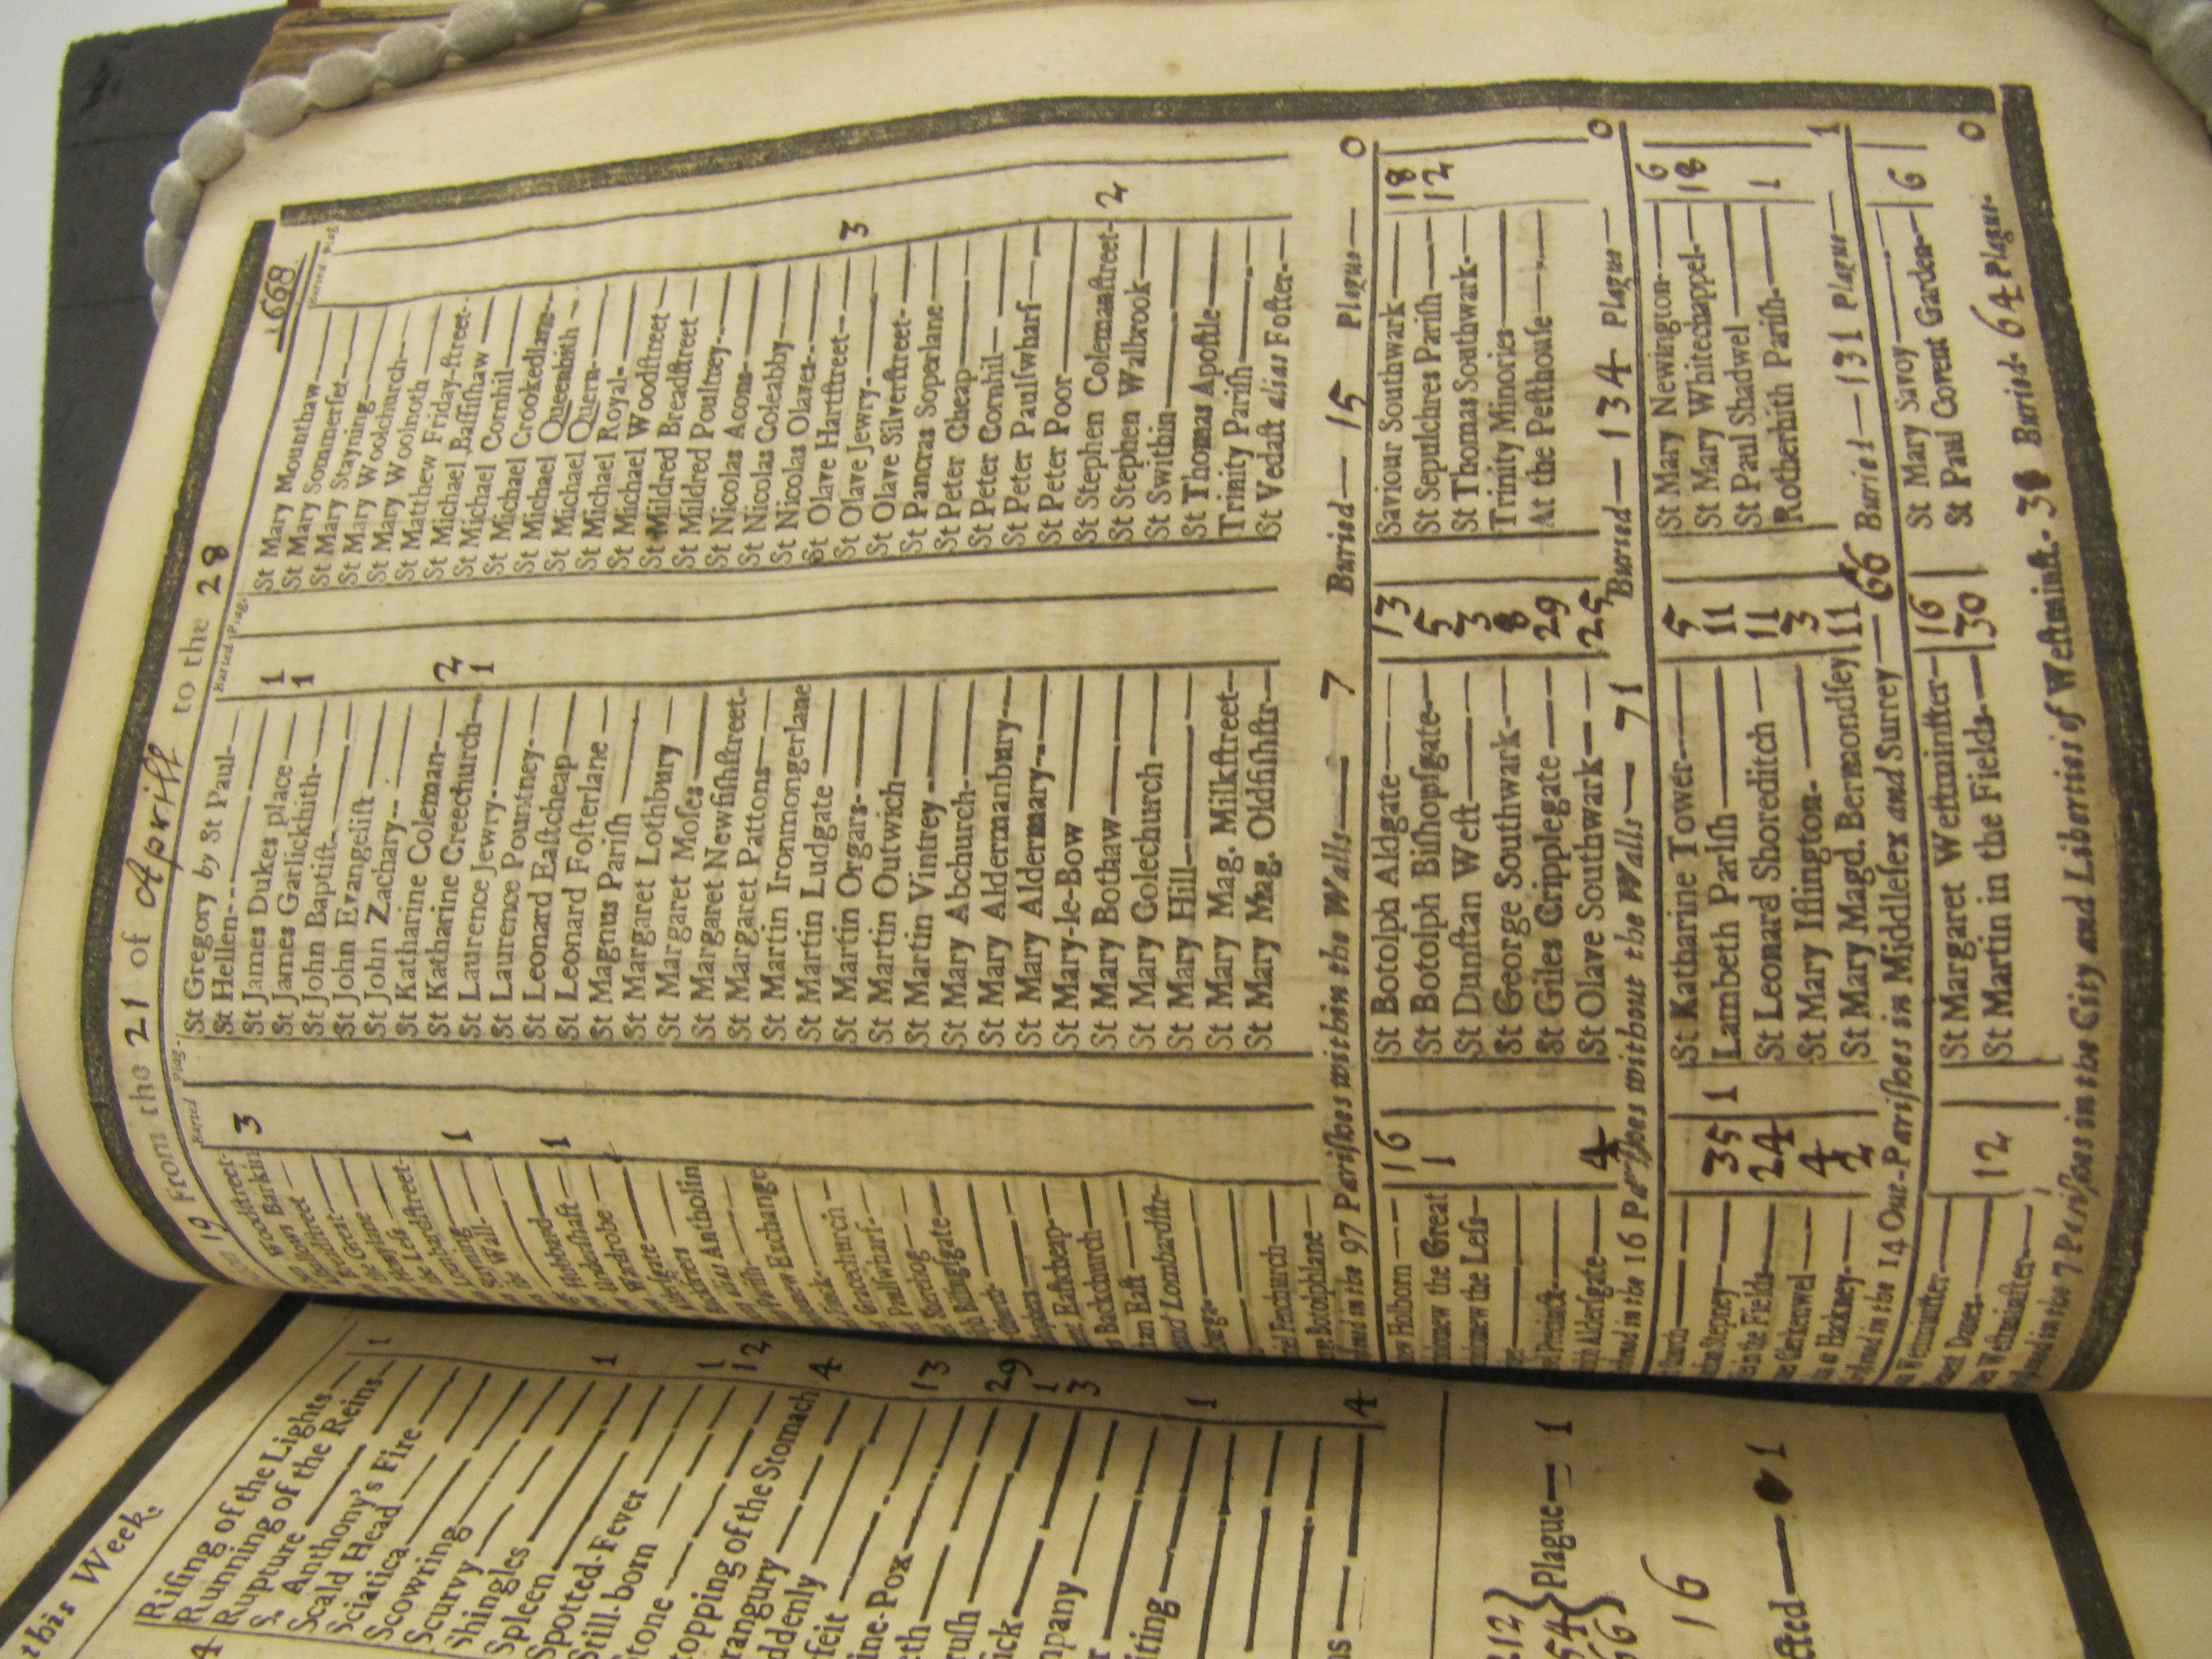 19 From the 21 of Aprill to the 28 1668
Buried Plag. Buried Plag. Buried Plag
Woodstreet-
Barkin 3
Breadstreet
Great
Honylane
Less
Lombardstreet-
Stayning 1
the Wall
Hubbard 1
Undershaft
Wardrobe
Aldersgate
Blackfryers
alias Antholin
Parish
new Exchange
Fink
Gracechurch
Paulswharf
Sherehog
Billingsgate
Eastcheap
Backchurch
East
Lombardstr.
Fenchurch
Botolphlane
St Gregory by St Paul-
St Hellen
St James Dukes place 1
St James Garlickhith 1
St John Baptist
St John Evangelist
St John Zachary
St Katharine Coleman 2
St Katharine Creechurch 1
St Laurence Jewry
St Laurence Pountney
St Leonard Eastcheap
St Leonard Fosterlane
St Magnus Parish
St Margaret Lothbury
St Margaret Moses
St Margaret Newfishstreet-
St Margaret Pattons
St Martin Ironmongerlane
St Martin Ludgate
St Martin Orgars
St Martin Outwich
St Martin Vintrey
St Mary Abchurch
St Mary Aldermanbury
St Mary Aldermary
St Mary-le-Bow
St Mary Bothaw
St Mary Colechurch
St Mary Hill
St Mary Mag. Milkstreet
St Mary Mag. Oldfishstr
St Mary Mounthaw
St Mary Sommerset
St Mary Stayning
St Mary Woolchurch
St Mary Woolnoth
St Matthew Friday-street-
St Michael Bassishaw
St Michael Cornhil
St Michael Crookedlane
St Michael Queenhith
St Michael Quern
St Michael Royal
St Michael Woodstreet
St Mildred Breadstreet
St Mildred Poultney
St Nicolas Acons
St Nicolas Coleabby
St Nicolas Olaves
St Olave Hartstreet 3
St Olave Jewry
St Olave Silverstreet
St Pancras Soperlane
St Peter Cheap
St Peter Cornhil
St Peter Paulswharf
St Peter Poor
St Stephen Colemanstreet 2
St Stephen Walbrook
St Swithin
St Thomas Apostle
Trinity Parish
St Vedast alias Foster
in the 97 Parishes within the Walls 7 Buried 15 Plague 0
Holborn 16
the Great 1
the Less
Precinct
Aldersgate 4
St Botolph Aldgate 13
St Botolph Bishopsgate 5
St Dunstan West 3
St George Southwark 8
St Giles Cripplegate 29
St Olave Southwark 25
Saviour Southwark 18
St Sepulchres Parish 12
St Thomas Southwark
Trinity Minories
At the Pesthouse
in the 16 Parishes without the Walls 71 Buried 134 Plague 0
Stepney 35 1
in the Fields 24
Clerkenwel 4
Hackney 2
St Katharine Tower 5
Lambeth Parish 11
St Leonard Shoreditch 11
St Mary Islington 3
St Mary Magd. Bermondsey 11
St Mary Newington 6
St Mary Whitechappel 18
St Paul Shadwel 1
Rotherhith Parish
in the 14 Out-Parishes in Middlesex and Surrey 66 Buried 131 Plague 1
Westminster
Danes 12
Westminster
St Margaret Westminster 16
St Martin in the Fields 30
St Mary Savoy
St Paul Covent Garden 6
in the 7 Parishes in the City and Liberties of Westminst. Buried 64 Plague 0
this Week.
4
Rising of the Lights 1
Running of the Reins
Rupture
S. Anthony's Fire
Scald Head
Sciatica
Scowring
Scurvy 1
Shingles
Spleen
Spotted-Fever 1
Still-born 12
Stone
topping of the Stomach 4
rangury
ddenly
feit 13
ine-Pox
eth 29
rush 1
ick 3
mpany
iting 1
ns 4
212
54
66
Plague 1
16
cted 1